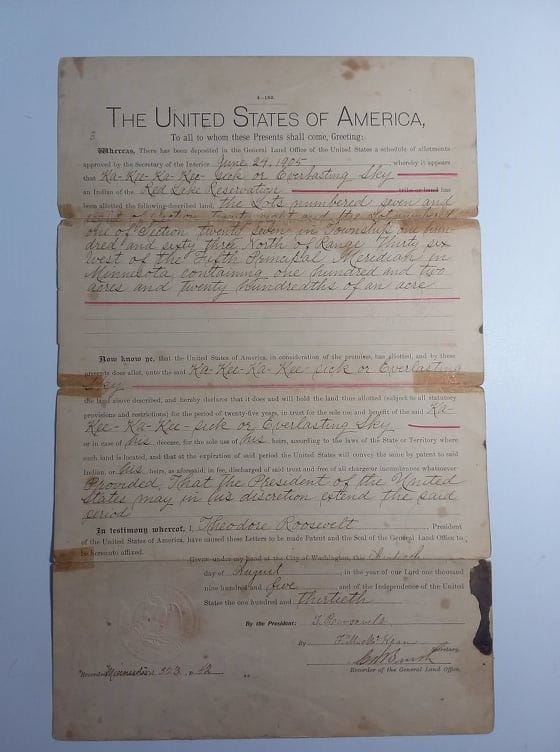 4—192.
THE UNITED STATES OF AMERICA,
3
To all to whom these Presents shall come, Greeting:
Whereas, There has been deposited in the General Land Office of the United States a schedule of allotments
approved by the Secretary of the Interior June 24, 1905 whereby it appears
that Ka-Kee-Ka-Kee-sick or Everlasting Sky
an Indian of the Red Lake Reservation tribe or band has
been allotted the following-described land, the Lots numbered seven and
eight of Section twenty eight and the Lot numbered
one of Section twenty seven in Township one hun-
dred and sixty three North of Range Thirty six
West of the Fifth Principal Meridian in
Minnesota, containing one hundred and two
acres and twenty hundredths of an acre
Now know ye, that the United States of America, in consideration of the premises, has allotted, and by these
presents does allot, unto the said Ka-Kee-Ka-Kee-sick or Everlasting
Sky
the land above described, and hereby declares that it does and will hold the land thus allotted (subject to all statutory
provisions and restrictions) for the period of twenty-five years, in trust for the sole use and benefit of the said Ka-
Kee-Ka-Kee-sick or Everlasting Sky
or in case of his decease, for the sole use of his heirs, according to the laws of the State or Territory where
such land is located, and that at the expiration of said period the United States will convey the same by patent to said
Indian, or his heirs, as aforesaid, in fee, discharged of said trust and free of all charge or incumbrance whatsoever
Provided, That the President of the United
States may in his discretion extend the said
period
In testimony whereof, I, Theodore Roosevelt, President
of the United States of America, have caused these Letters to be made Patent and the Seal of the General Land Office to
be hereunto affixed.
Given under my hand at the City of Washington, this
day of August, in the year of our Lord one thousand
nine hundred and five, and of the Independence of the United
States the one hundred and thirtieth
By the President: T. Roosevelt
By F. M. McKean
Secretary.
Recorder of the General Land Office.
Minnesota 323